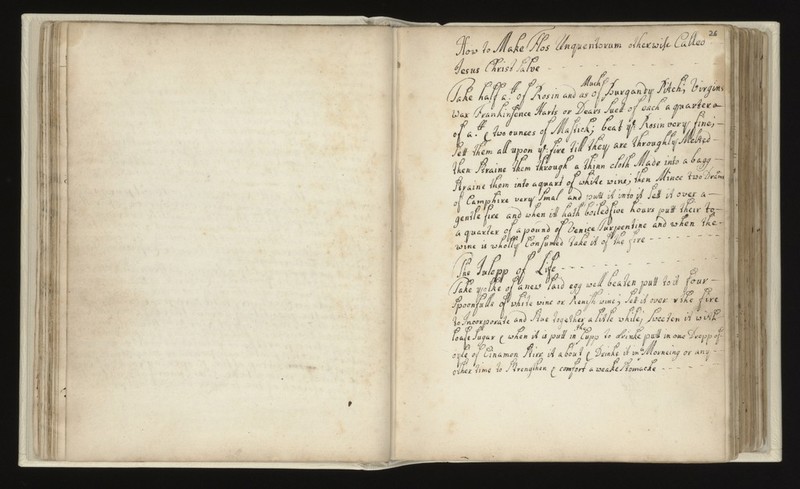 26
How to Make Flos Unguentorum otherwise Called
Jesus Christ Salve
Much
Take half a tt of Rosin and as of Burgandy Pitch, Virgins
Wax Frankinsence Harts or Dears Suet of each a quarter
of a tt & two ounces of Mastick; beat ye Rosin very fine;
Sett them all upon ye fire till they are throughly Melted
then Straine them through a thinn cloth Made into a bagg
Straine them into a quart of white wine; then Mince two Drams
of Camphire very Smal and putt it into it Sett it over a
gentle fire and when it hath boiled five hours putt their to
a quarter of a pound of Venice Turpentine and when the
wine is wholly Consumed take it of the fire
The Julepp of Life
Take yolke of a new laid egg well beaten putt to it four
Spoonfulls of white wine or Renish wine; Set it over the fire
to Incorporate and Stue together a little while; Sweeten it with
loafe Sugar & when it is putt in the Cupp to drinke putt in one Dropp of
oyle of Cinamon Stirr it about & Drinke it in Morneing or any
other time to Strengthen & comfort a weake Stomacke